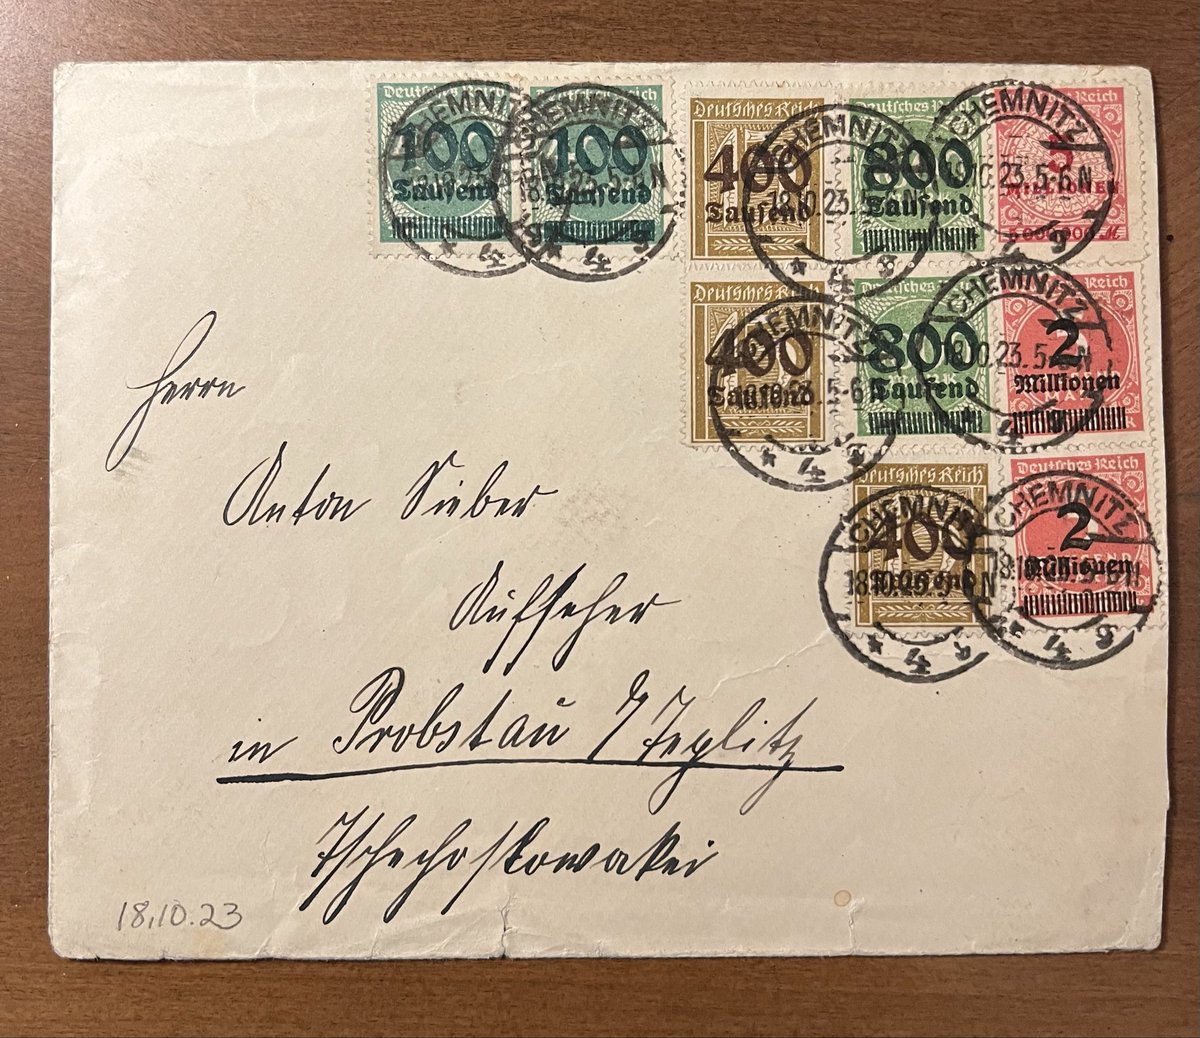 Deutsches Reich
100
Tausend
Deutsches Reich
100
Tausend
Deutsches Reich
400
Tausend
Deutsches Reich
800
Tausend
Reich
MILLIONEN
CHEMNITZ
CHEMNITZ
CHEMNITZ
18.10.23. 5-6 N
CHEMNITZ
Deutsches Reich
400
Tausend
Deutsches
800
Tausend
Reich
2
Millionen
CHEMNITZ
CHEMNITZ
18.10.23. 5-6 N
Deutsches Reich
400
Tausend
Deutsches Reich
2
Millionen
CHEMNITZ
18.10.23. 5-6 N
CHEMNITZ
18.10.23. 5-6 N
Herrn
Anton Sieber
Aufseher
in Probstau b/Teplitz
Tschechoslowakei
18.10.23